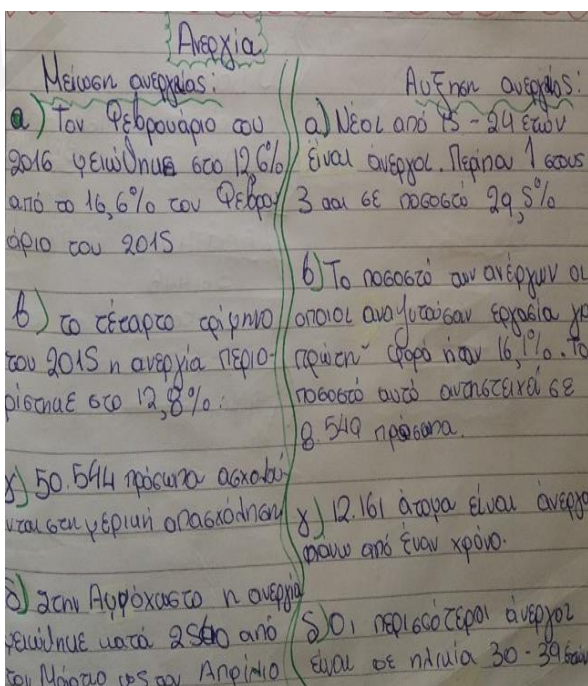 Ανεργία
Μείωση ανεργίας:
α) Τον Φεβρουάριο του
2016 μειώθηκε στο 12,6%
από το 16,6% τον Φεβρου
άριο του 2015
β) το τέταρτο τρίμηνο
του 2015 η ανεργία περιο-
ρίστηκε στο 12,8%.
γ) 50.544 πρόσωπα ασχολού-
νται στη μερική απασχόληση
δ) Στην Αμμόχωστο η ανεργία
μειώθηκε κατά από
τον Μάρτιο ως τον Απρίλιο
Αυξηση ανεργίας:
α) Νέοι από 15 - 24 ετών
είναι άνεργοι. Περίπου 1 στους
3 και σε ποσοστό 29,5%
β) Το ποσοστό των ανέργων οι
οποιοι αναζητούσαν εργασία για
πρώτη φορά ήταν 16,1%. Το
ποσοστό αυτό αντηστειχεί σε
8.549 πρόσωπα.
γ) 12.161 άτομα είναι άνεργ
πανω από έναν χρόνο.
δ) Οι περισσότεροι άνεργοι
είναι σε ηλικία 30 - 39 ετών